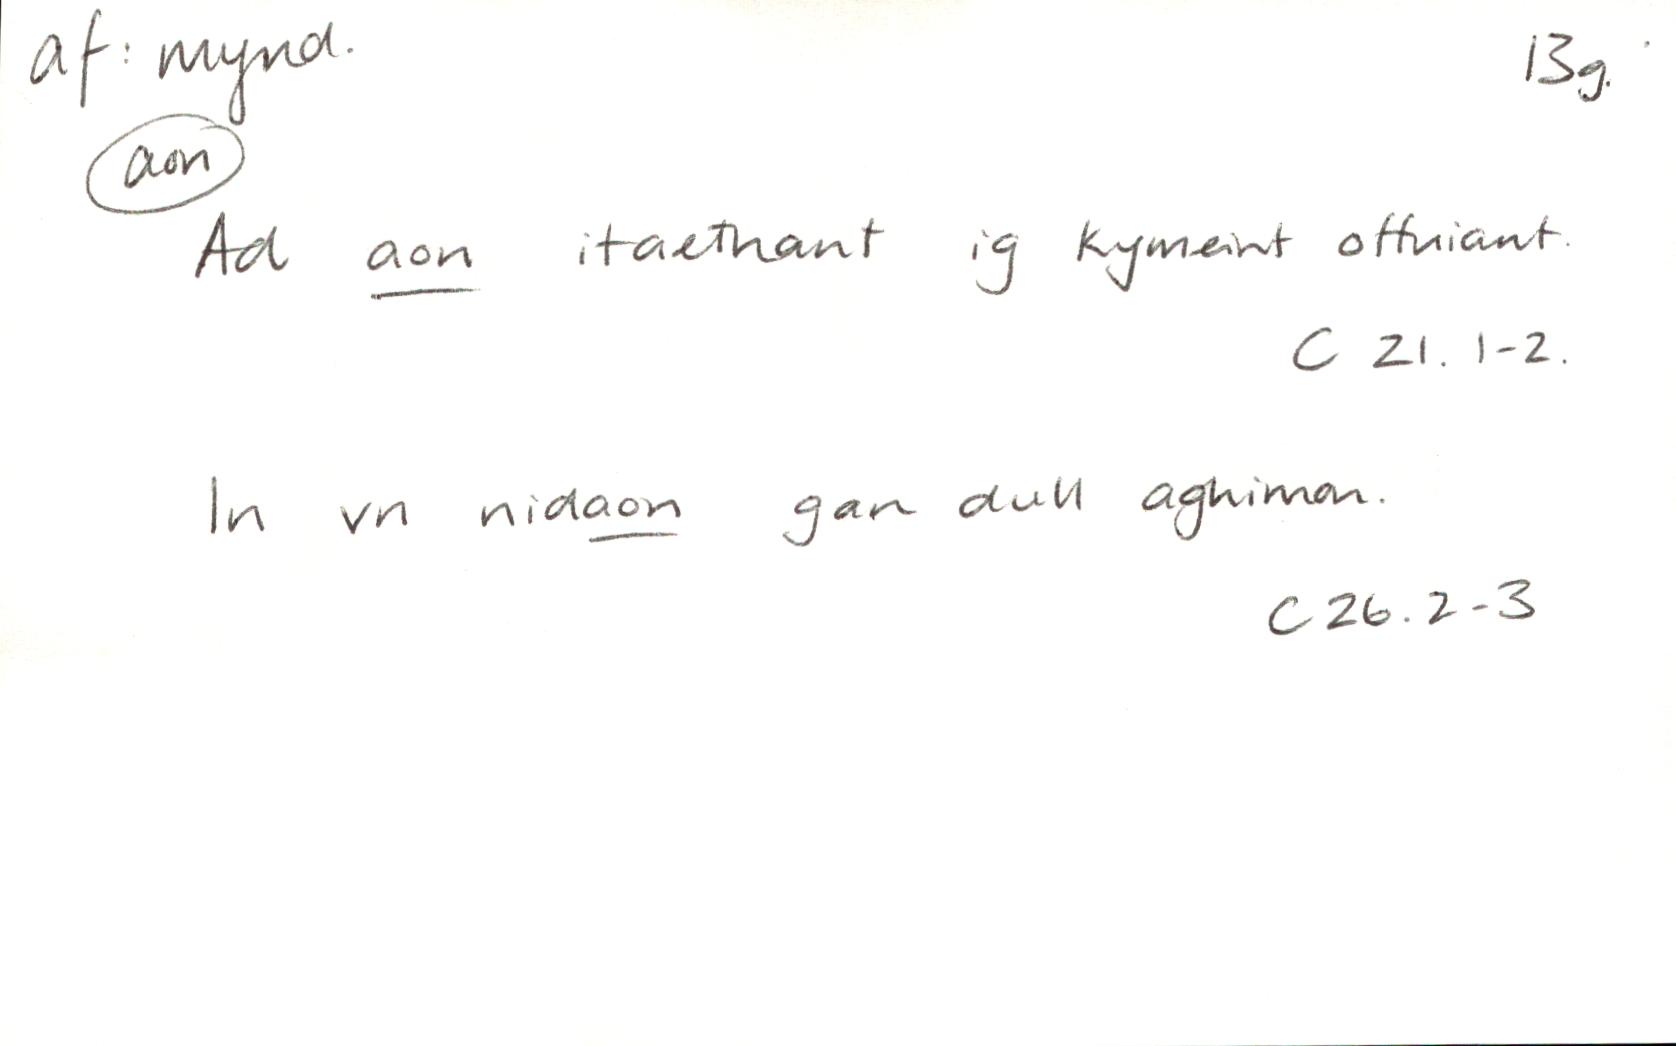 af: mynd.
13g.
aon
Ad aon itaethant ig kymeint offuiant.
C 21. 1-2.
In vn nidaon gan dull aghimon.
C 26. 2-3